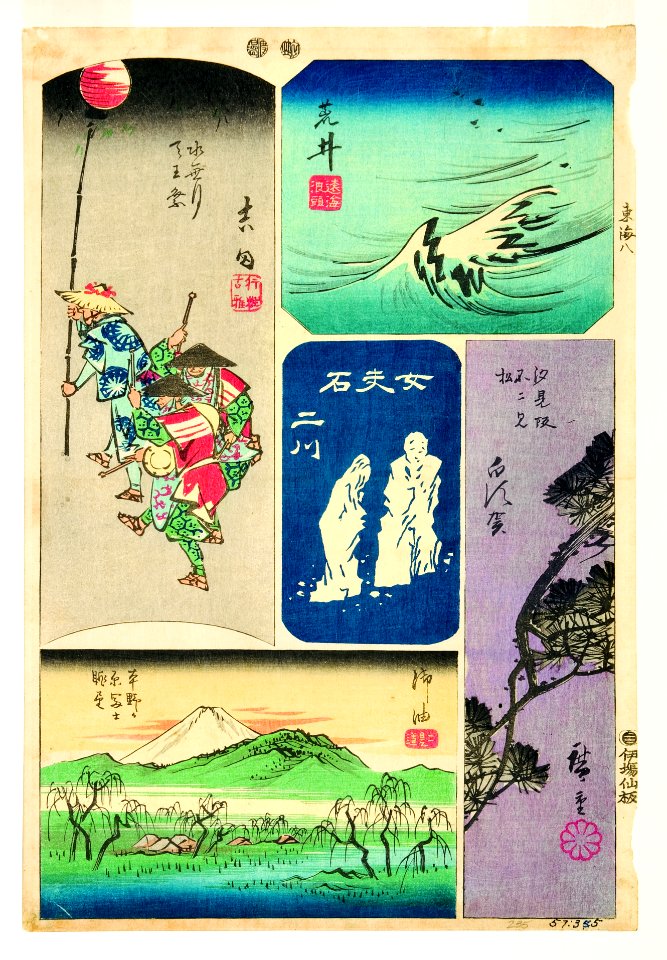 水無月
天王祭
吉田
荒井
遠海
浪頭
東海八
女夫石
二川
汐見坂
不二見
松
白須賀
御油
本野ヶ
原冨士
眺望
廣重
伊場仙板
57:355